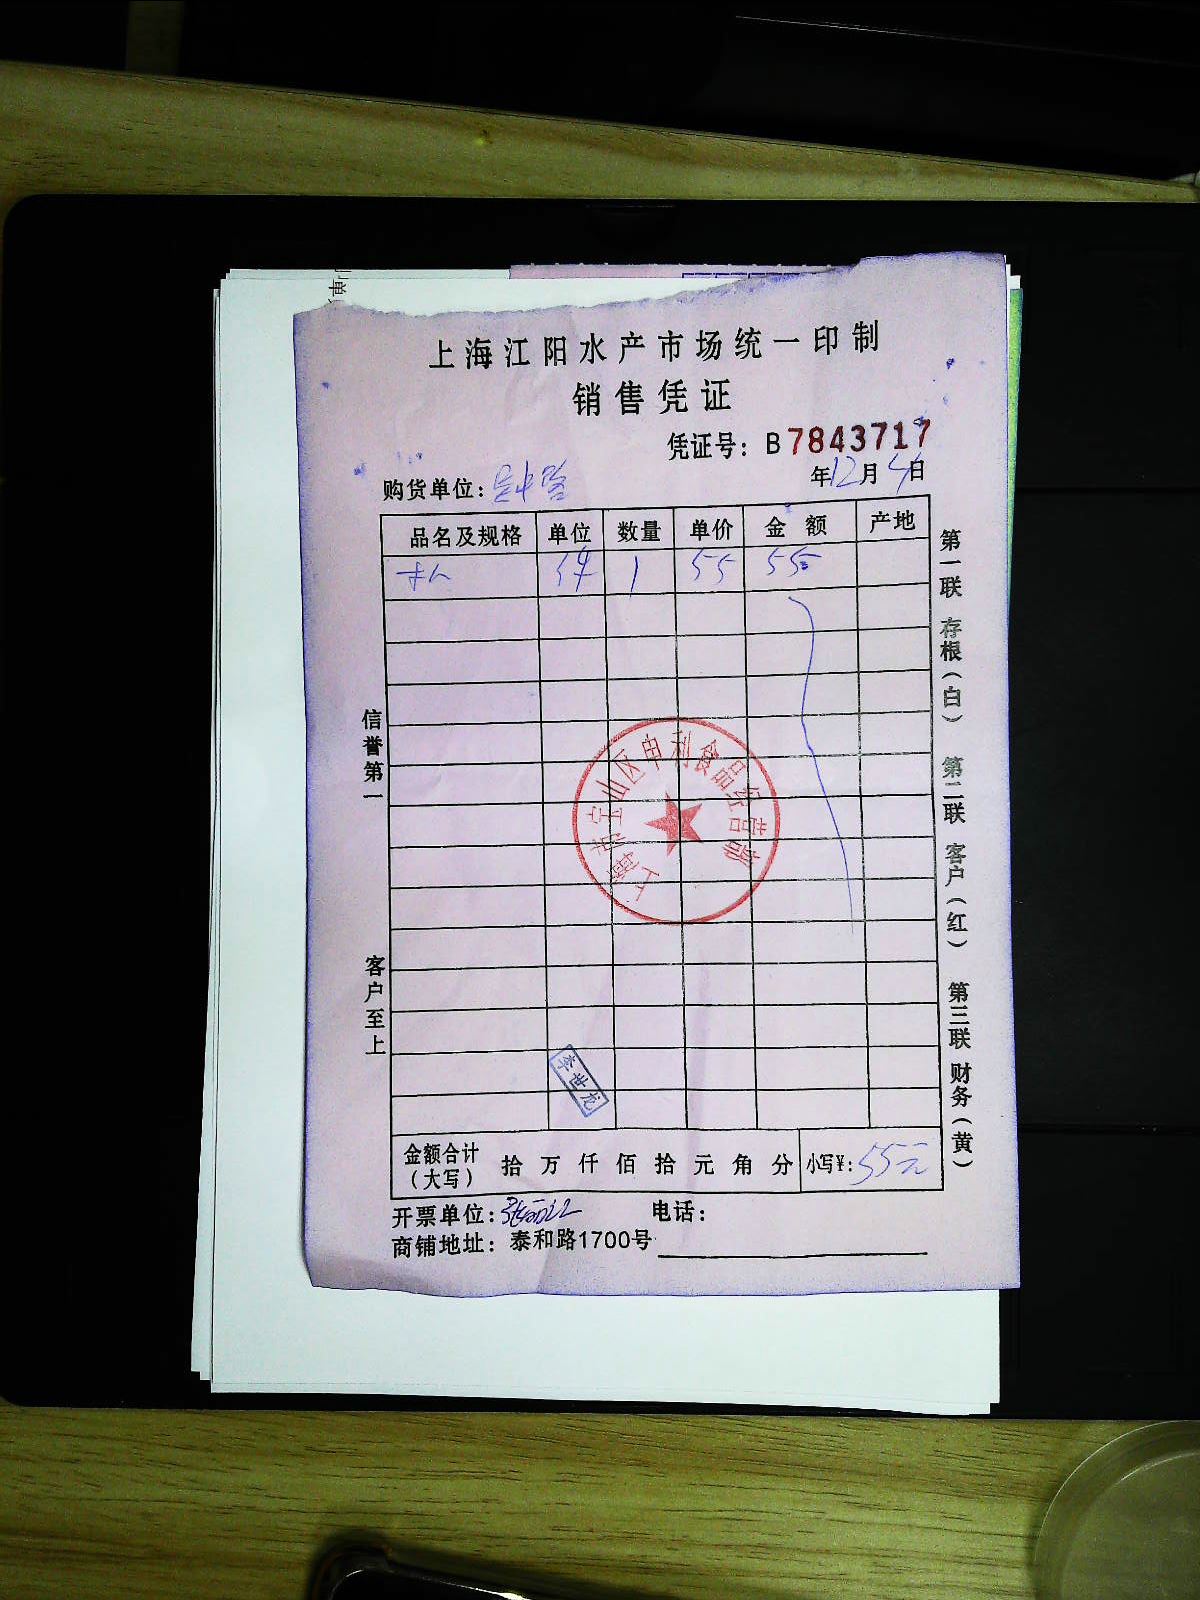 上海江阳水产市场统一印制
销售凭证
凭证号：B7843717
购货单位：
年12月4日
品名及规格 单位 数量 单价 金额 产地
件 1 55 55
信誉第一
客户至上
第一联 存根（白） 第二联 客户（红） 第三联 财务（黄）
上海市宝山区申利食品经营部
李世龙
金额合计（大写） 拾 万 仟 佰 拾 元 角 分 小写¥：55元
开票单位： 电话：
商铺地址：泰和路1700号